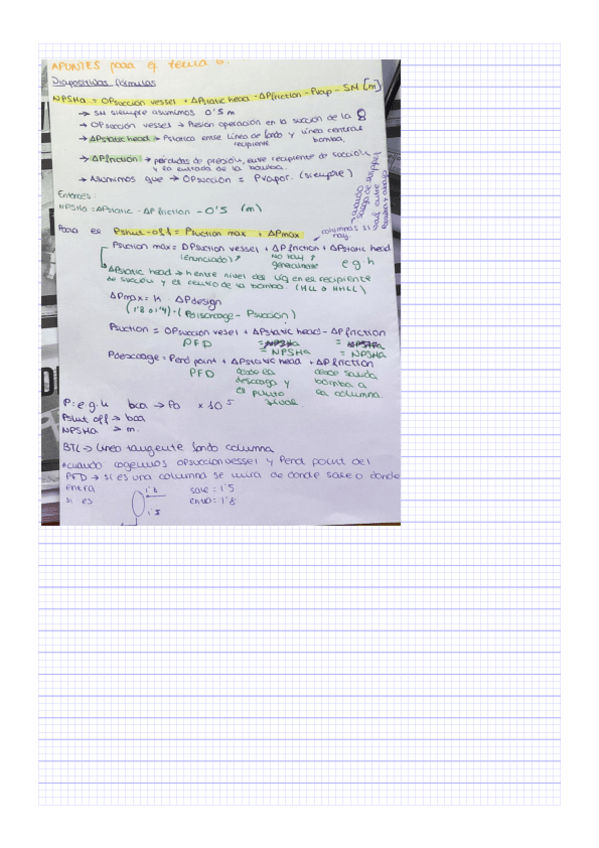 APUNTES para el tema 6.
Diapositivas fórmulas
NPSHa = OPsucción vessel + ΔPstatic head - ΔPfriction - Pvap - SM [m]
→ SM siempre asumimos 0'5 m
→ OPsucción vessel → Presión operación en la succión de la
→ ΔPstatic head → Pstatica entre línea de fondo y línea central
recipiente bomba.
→ ΔPfriction → pérdidas de presión, entre recipiente de succión
y la entrada de la bomba.
→ Asumimos que → OPsucción = Pvapor. (siempre)
Entonces:
NPSHa = ΔPstatic - ΔPfriction - 0'5 (m)
Para el Pshut-off = Psuction max + ΔPmax
columnas si
hay.
Psuction max = DPsuction vessel + ΔPfriction + ΔPstatic head
(enunciado) no hay generalmente e·g·h
ΔPstatic head → h entre nivel del líq en el recipiente
de succión y el centro de la bomba. (HLL o HHLL)
ΔPmax = K · ΔPdesign
(1'8 o 1'4) · (Pdischarge - Psucción)
Psuction = OPsuccion vessel + ΔPstatic head - ΔPfriction
PFD = NPSHa = NPSHa
Pdescarge = Pend point + ΔPstatic head + ΔPfriction
PFD desde la desde salida
descarga y bomba a
el punto la columna.
final.
P = e·g·h bca → Pa x10⁵
Pshut off → bca
NPSHa → m.
BTL → línea tangente fondo columna
*cuando cogemos opsuccionvessel y Pend point del
PFD → si es una columna se mira de donde sale o donde
entra 1'8 sale = 1'5
si es 1'5 entra = 1'8